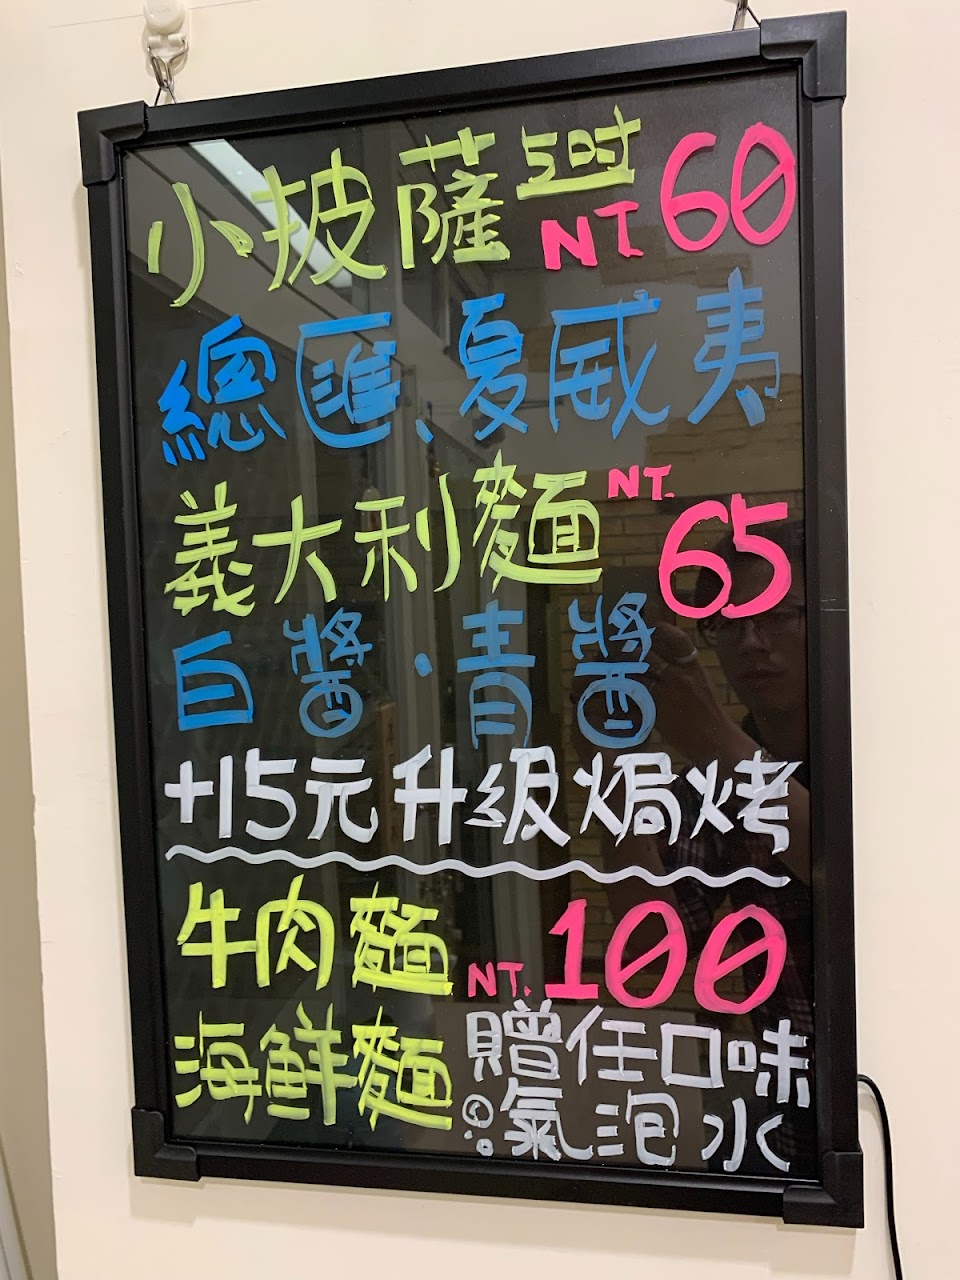 小披薩 5吋 NT 60
總匯、夏威夷
義大利麵 NT. 65
白醬·青醬
+15元升級焗烤
牛肉麵 NT. 100
海鮮麵 贈任口味
氣泡水